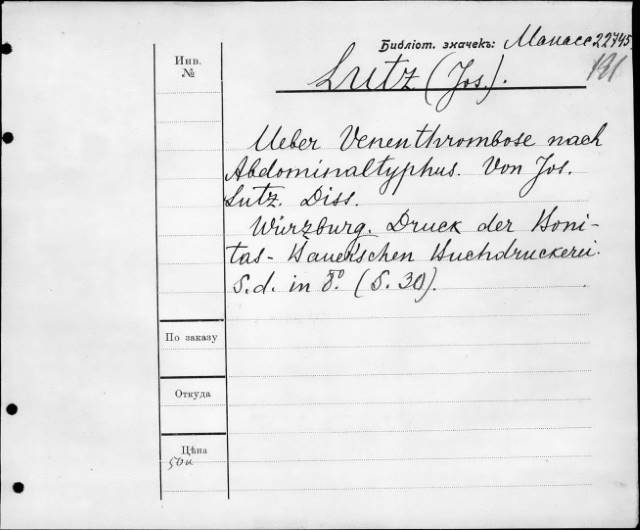 Библіот. значекъ: Манасс 22745
191
Инв.
№
Lutz (Jos.).
Ueber Venenthrombose nach
Abdominaltyphus. Von Jos.
Lutz. Diss.
Würzburg. Druck der Boni-
tas-Bauer'schen Buchdruckerei.
S.d. in 8º. (S. 30).
По заказу
Откуда
Цѣна
50к